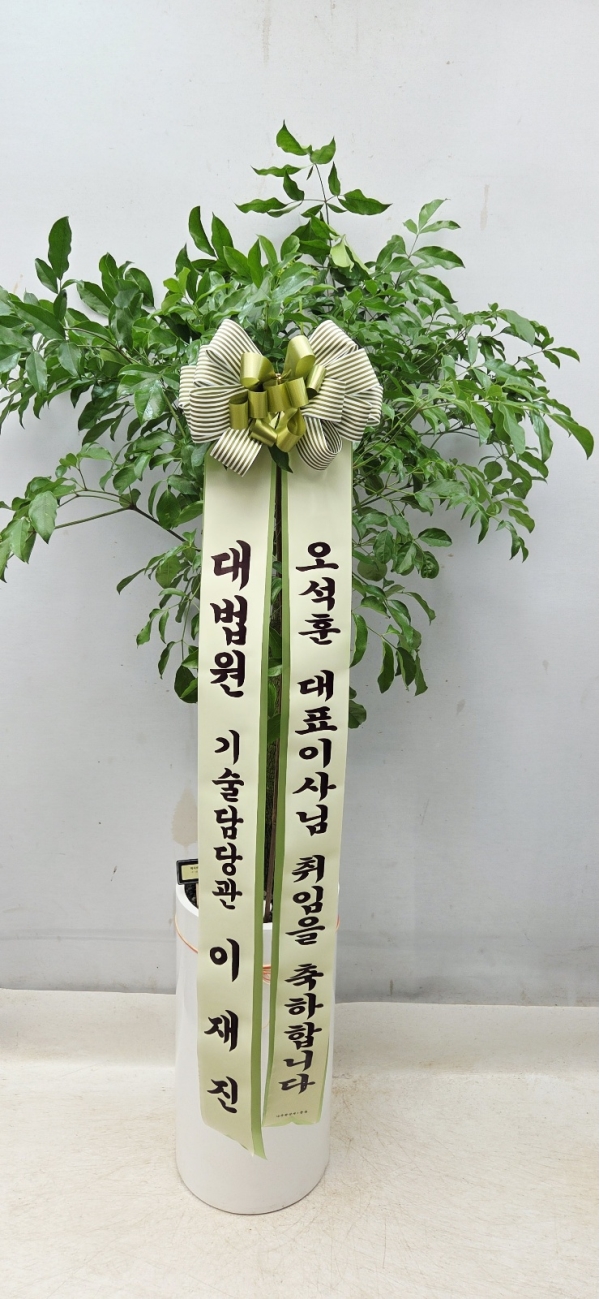 오석훈 대표이사님 취임을 축하합니다
대법원 기술담당관 이재진